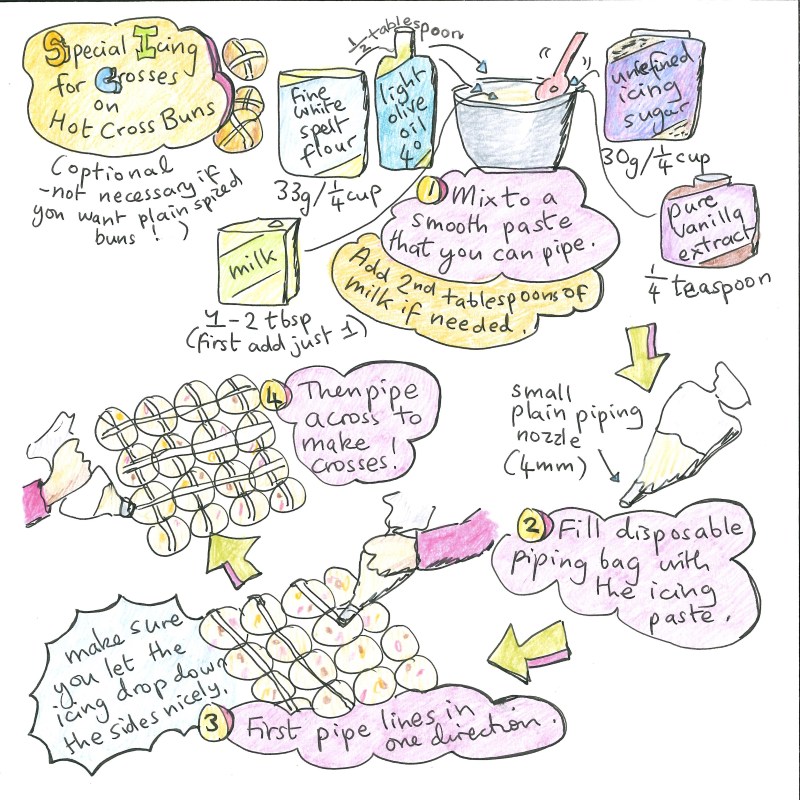 Special Icing
for Crosses
on
Hot Cross Buns
(optional
-not necessary if
you want plain spiced
buns!)
fine
white
spelt
flour
33g/¼ cup
½ tablespoon
light
olive
oil
40
unrefined
icing
sugar
30g/¼ cup
pure
vanilla
extract
¼ teaspoon
milk
1-2 tbsp
(first add just 1)
1 Mix to a
smooth paste
that you can pipe.
Add 2nd tablespoons of
milk if needed.
small
plain piping
nozzle
(4mm)
2 Fill disposable
piping bag with
the icing
paste.
3 First pipe lines in
one direction.
make sure
you let the
icing drop down
the sides nicely.
4 Then pipe
across to
make
crosses!